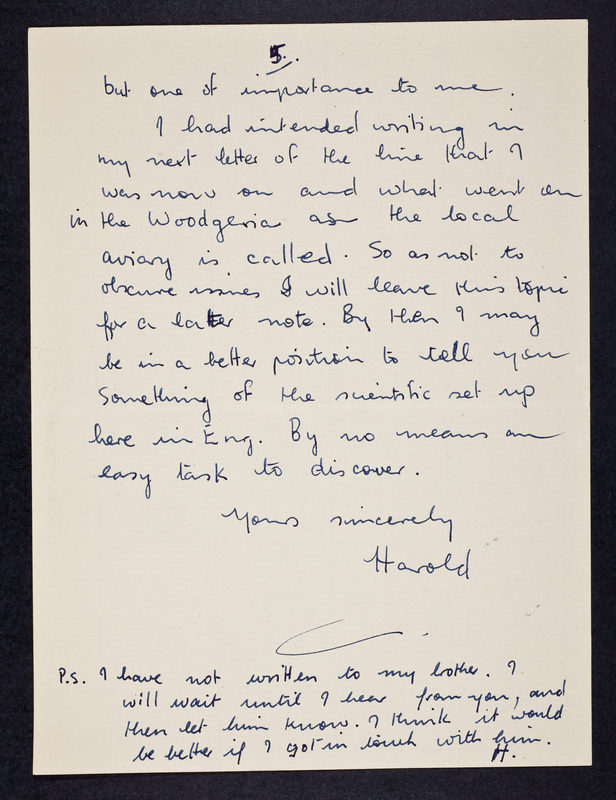 5.
but one of importance to me.
I had intended writing in
my next letter of the line that I
was now on and what went on
in the Woodgeria as the local
aviary is called. So as not to
obscure issues I will leave this topic
for a later note. By then I may
be in a better position to tell you
something of the scientific set up
here in Eng. By no means an
easy task to discover.
Yours sincerely
Harold
P.S. I have not written to my brother. I
will wait until I hear from you, and
then let him know. I think it would
be better if I got in touch with him.
H.